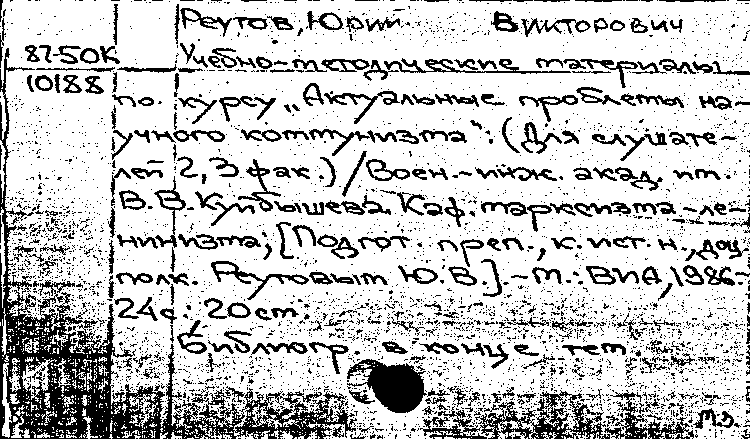 Реутов, Юрий Викторович
87-50К Учебно-методические материалы
10188
по курсу „Актуальные проблемы на-
учного коммунизма": (Для слушате-
лей 2, 3 фак.) / Воен.-инж. акад. им.
В.В. Куйбышева. Каф. марксизма-ле-
нинизма; [Подгот. преп., к. ист. н., доц.
полк. Реутовым Ю.В.].-М.: ВИА, 1986.-
24с.; 20см.
Библиогр. в конце тем.